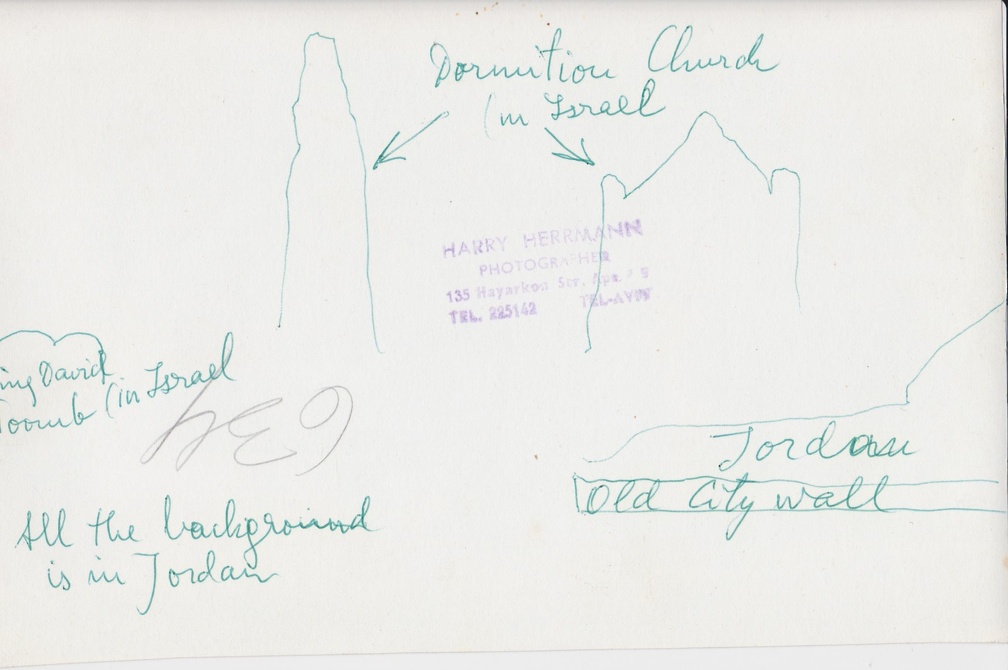 Dormition Church
(in Israel
HARRY HERRMANN
PHOTOGRAPHER
135 Hayarkon Str. Apt. 9
TEL. 225142 TEL-AVIV
ing David
Toomb (in Israel
634
Jordan
Old City wall
All the background
is in Jordan